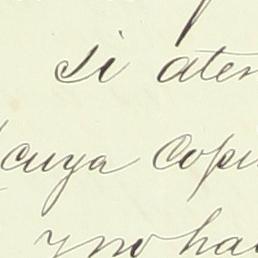 si aten
cuya copi
y no ha